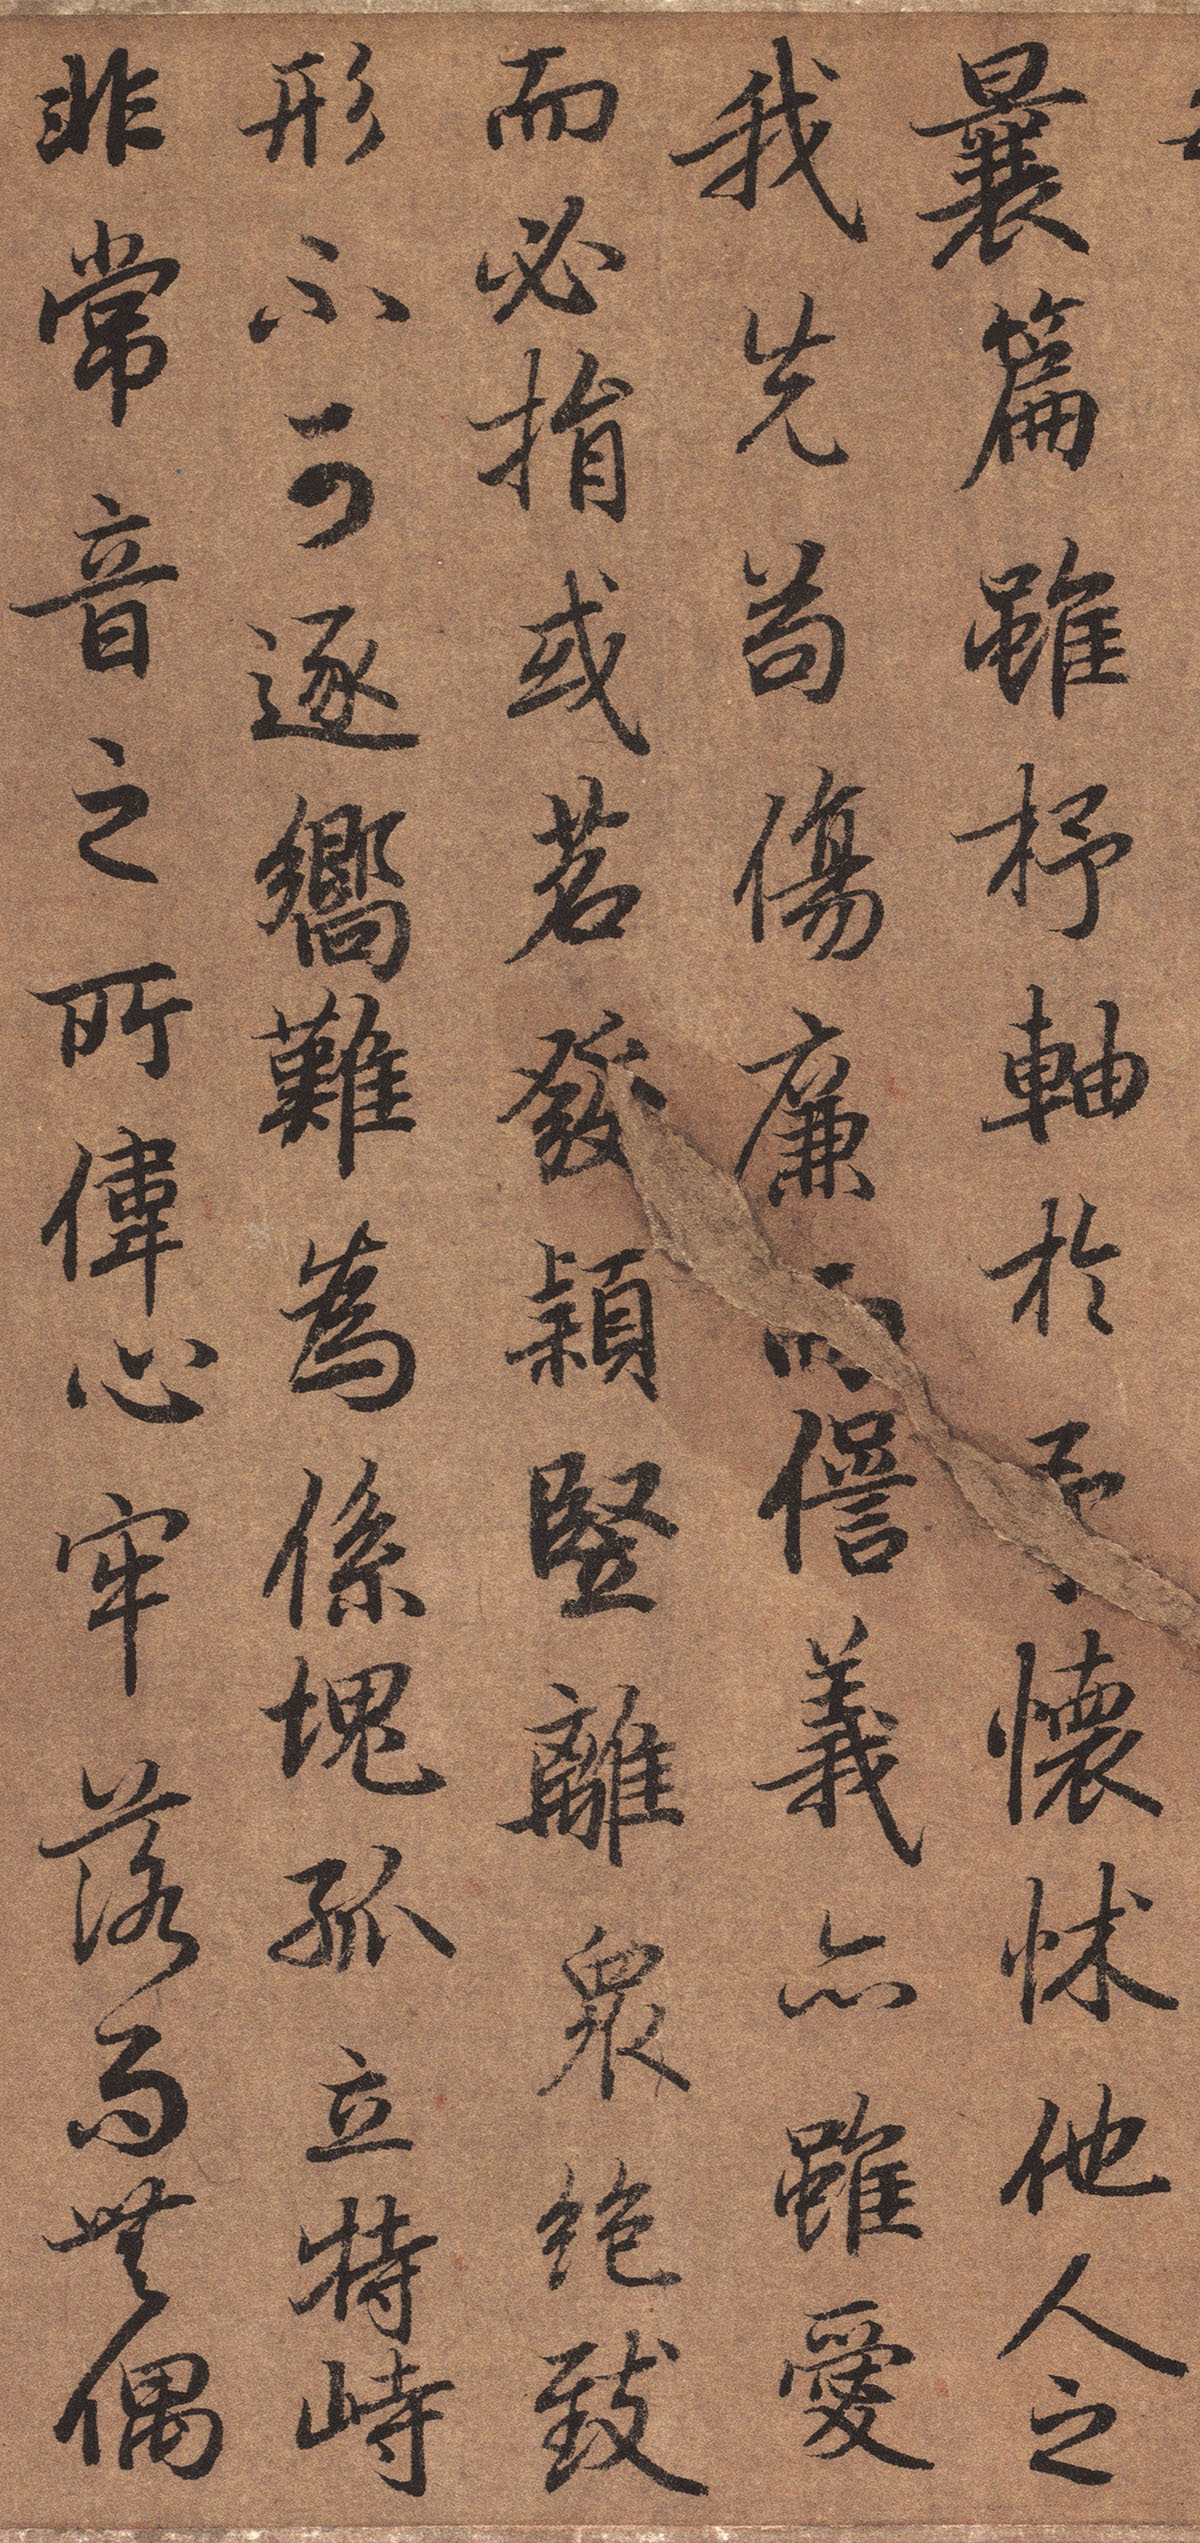 曩篇雖杼軸於予懷怵他人之
我先苟傷廉而僁義亦雖愛
而必捐或苕發穎豎離衆絶致
形不可逐響難為係塊孤立特峙
非常音之所偉心牢落而無偶